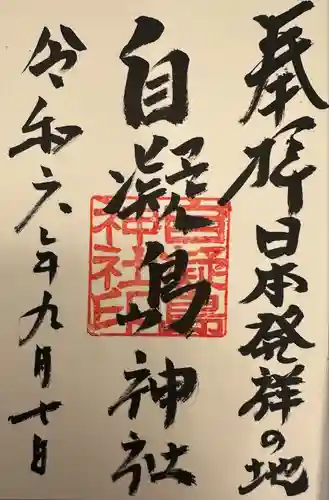 奉拝日本発祥の地
自凝島神社
自凝島神社印
令和六年九月十日